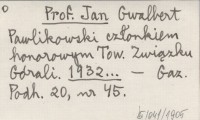 Prof. Jan Gwalbert
Pawlikowski członkiem
honorowym Tow. Związku
Górali. 1932... — Gaz.
Podh. 20, nr 45.